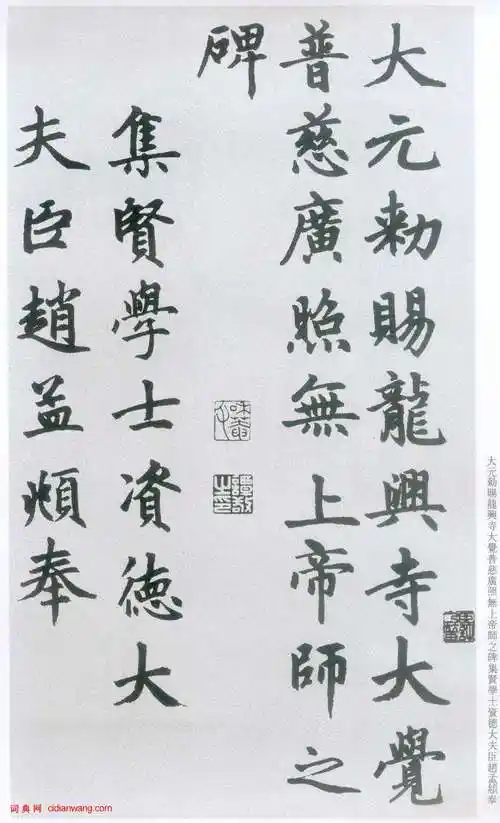 大元勅賜龍興寺大覺
普慈廣照無上帝師之
碑
集賢學士資德大
夫臣趙孟頫奉
大元勅賜龍興寺大覺普慈廣照無上帝師之碑集賢學士資德大夫臣趙孟頫奉
词典网 cidianwang.com